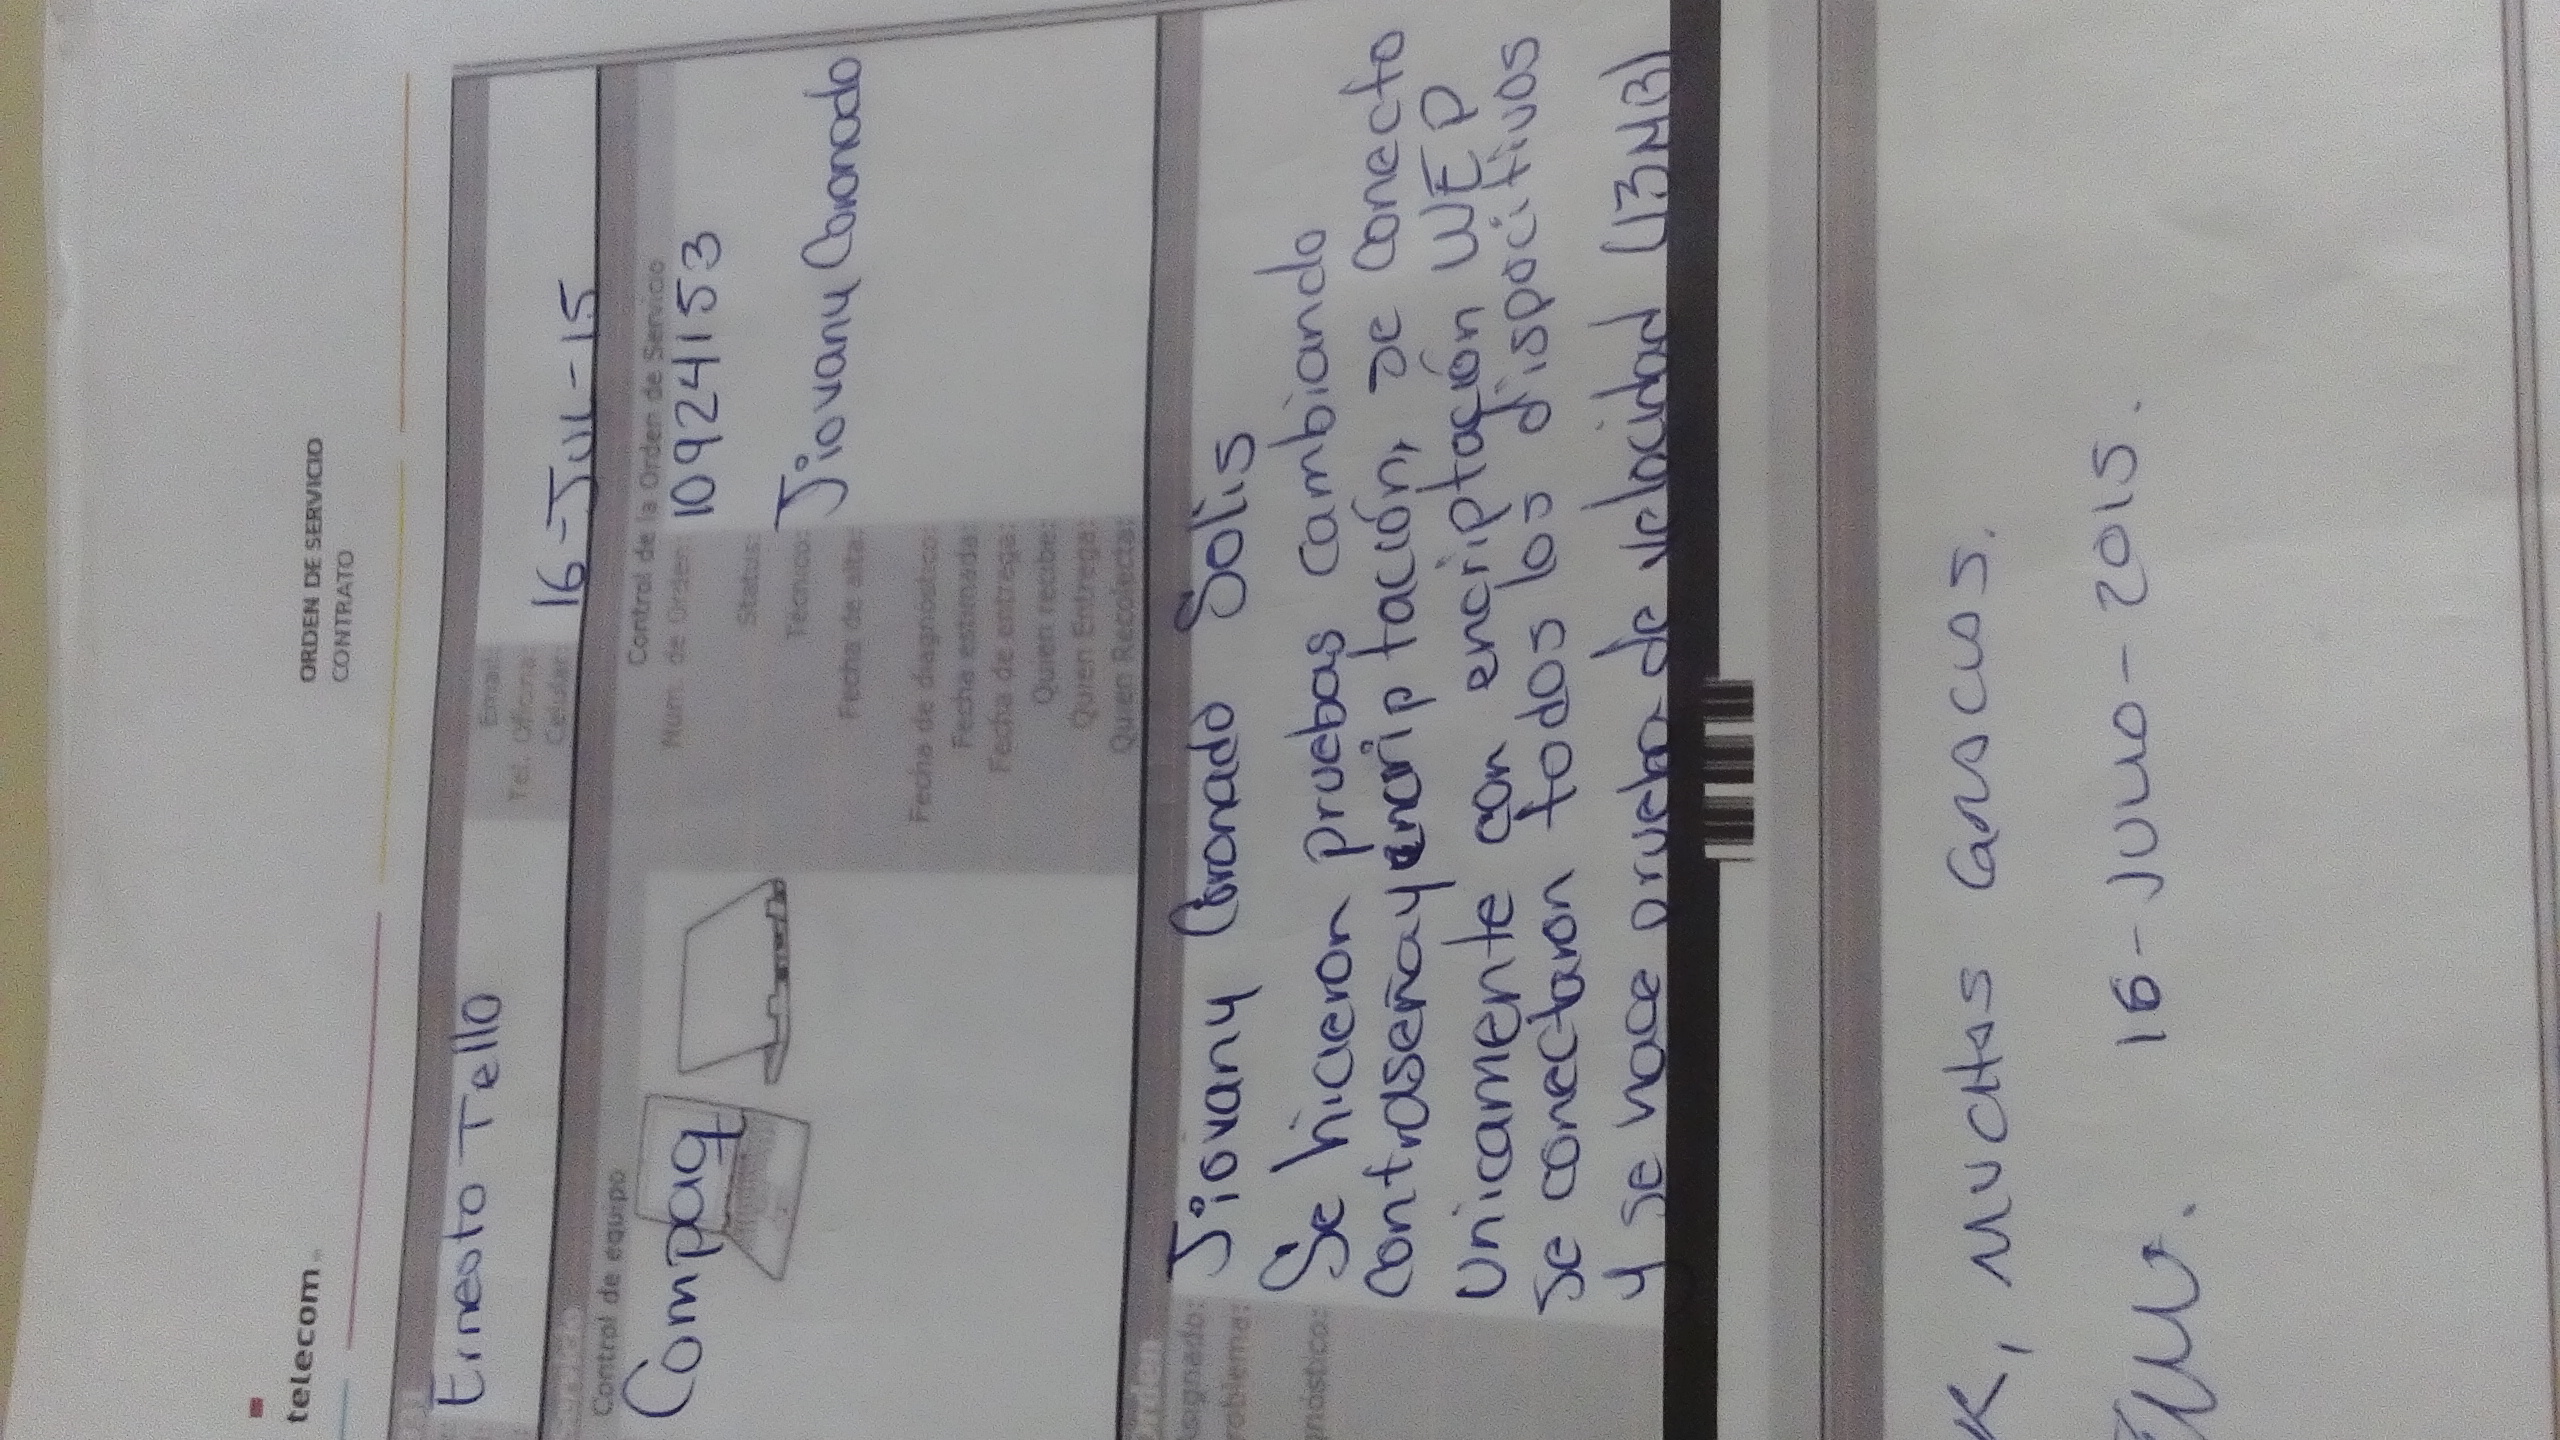 telecom
ORDEN DE SERVICIO
CONTRATO
Ernesto Tello
Email:
Tel. Oficina:
Celular:
16-JUL-15
Servicio
Control de equipo
Compaq
Control de la Orden de Servicio
Num. de Orden: 10924153
Status:
Técnico: Jiovany Coronado
Fecha de alta:
Fecha de diagnóstico:
Fecha estimada:
Fecha de entrega:
Quien recibe:
Quien Entrega:
Quien Recolecta:
Orden
Asignado: Jiovany Coronado Solis
roblema:
gnóstico: Se hicieron pruebas cambiando
contraseña y encriptación, se conecto
unicamente con encriptación WEP
se conectaron todos los dispocitivos
y se hace prueba de velocidad (13MB)
K, MUCHAS GRACIAS.
16-JULIO-2015.